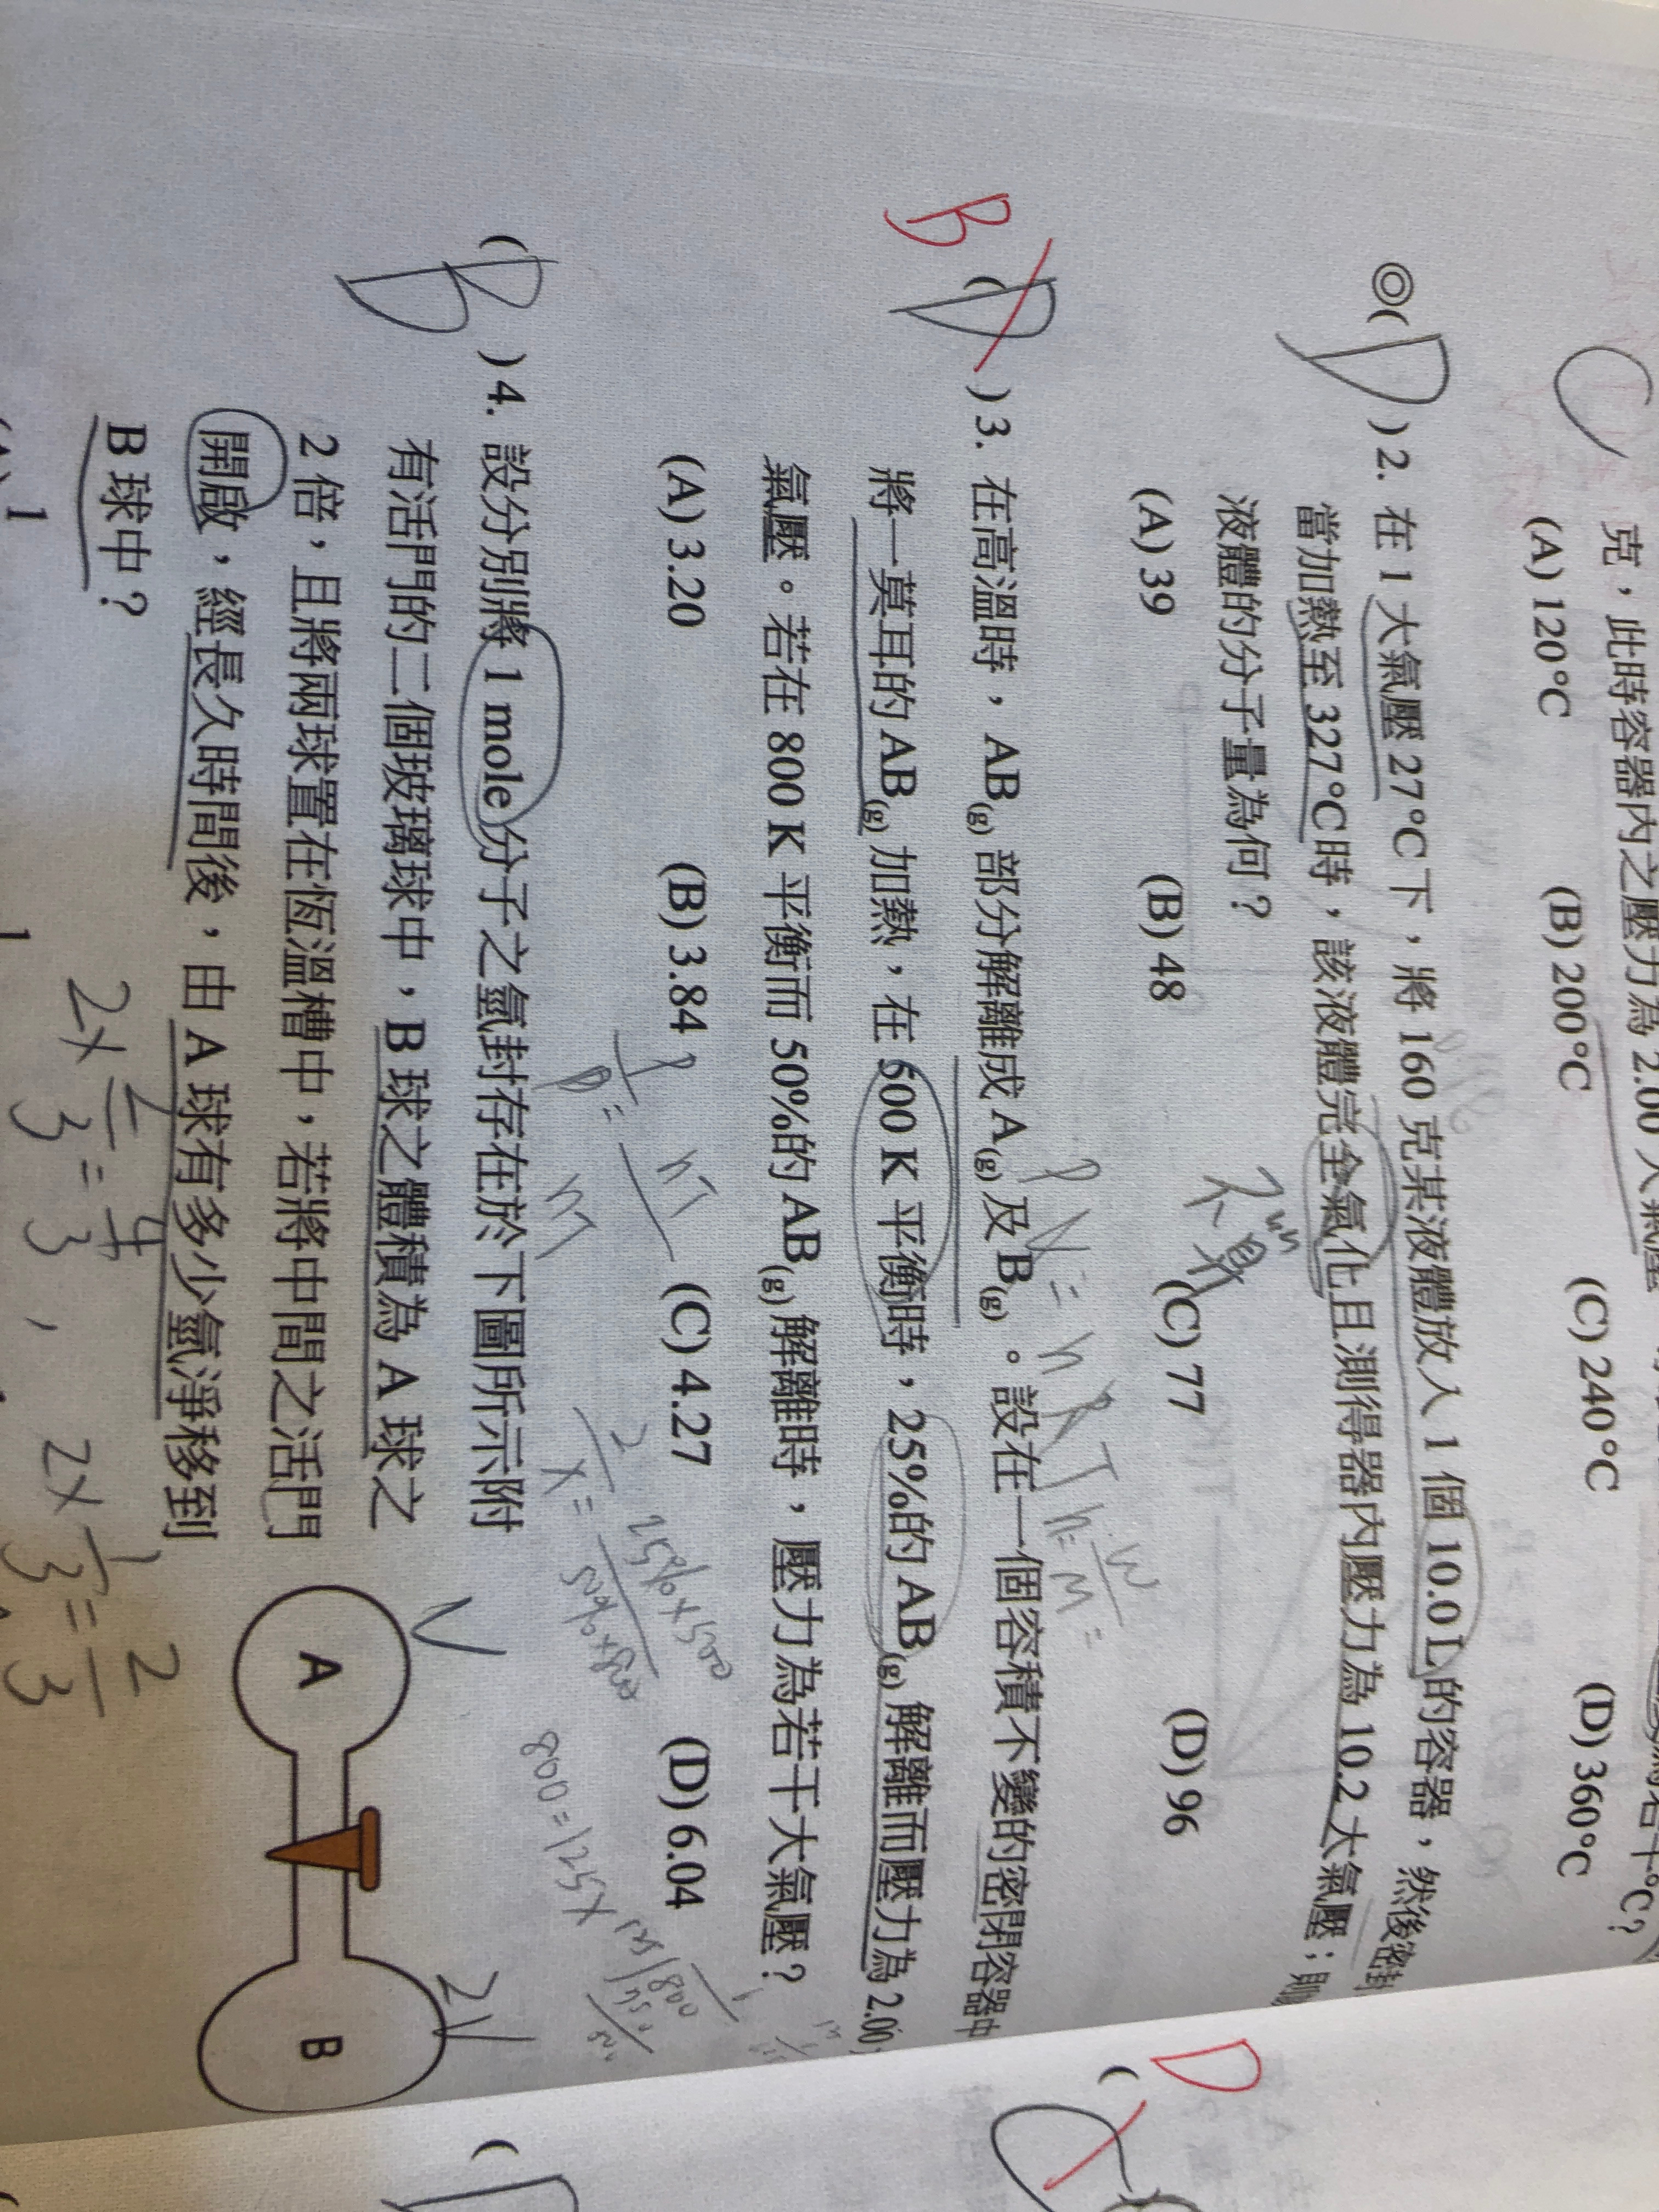 克，此時容器內之壓力為 2.00 大氣壓
(A) 120°C (B) 200°C (C) 240°C (D) 360°C
C
◎( D ) 2. 在 1 大氣壓 27°C下，將 160 克某液體放入 1 個 10.0 L 的容器，然後密封
當加熱至 327°C時，該液體完全氣化且測得器內壓力為 10.2 大氣壓；則
液體的分子量為何？
(A) 39 (B) 48 (C) 77 (D) 96
PV = nRT
B ( D ) 3. 在高溫時，AB(g) 部分解離成 A(g) 及 B(g)。設在一個容積不變的密閉容器中
將一莫耳的 AB(g) 加熱，在 500 K 平衡時，25%的 AB(g) 解離而壓力為 2.00
氣壓。若在 800 K 平衡而 50%的 AB(g) 解離時，壓力為若干大氣壓？
(A) 3.20 (B) 3.84 (C) 4.27 (D) 6.04
P/P = nT/nT
( B ) 4. 設分別將 1 mole 分子之氫封存在於下圖所示附
有活門的二個玻璃球中，B 球之體積為 A 球之
2 倍，且將兩球置在恆溫槽中，若將中間之活門
開啟，經長久時間後，由 A 球有多少氫淨移到
B 球中？
V
A
2V
B
2×2/3=4/3，2×1/3=2/3
D